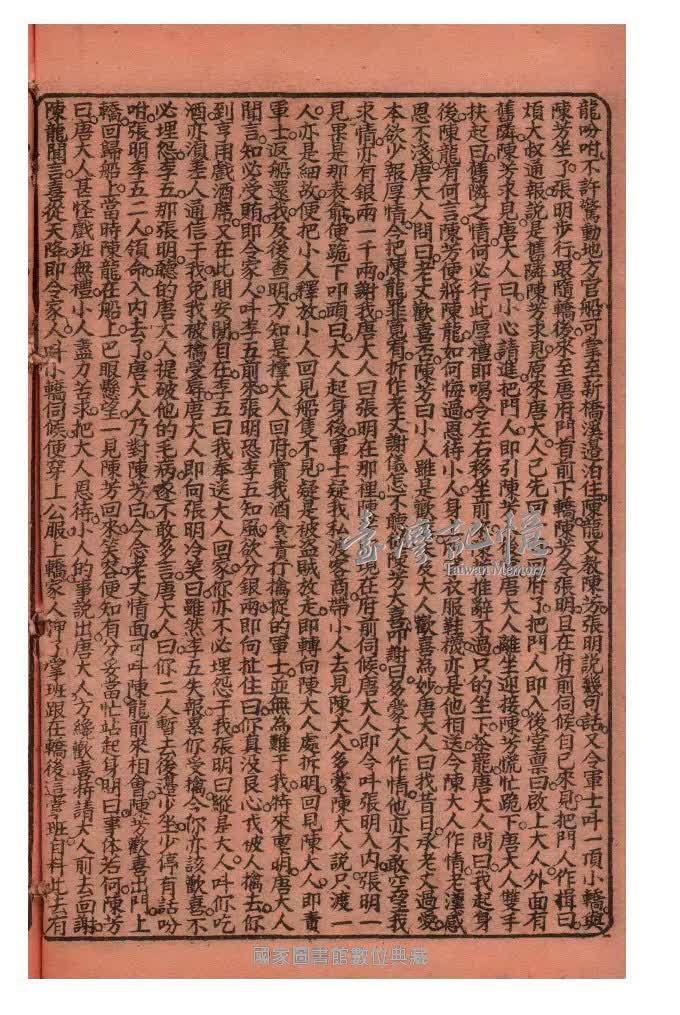 龍吩咐不許驚動地方官船可掌至新橋溪邊泊住陳龍又教陳芳張明說幾句話又令軍士呌一頂小轎與
陳芳坐了張明步行跟隨轎後來至唐府門首前下轎陳芳令張明且在府前伺候自己來見把門人作揖曰
煩大叔通報說是舊隣陳芳求見原來唐大人已先回府了把門人即入後堂禀曰啟上大人外面有
舊隣陳芳求見唐大人曰小心請進把門人即引陳芳唐大人離坐迎接陳芳慌忙跪下唐大人雙手
扶起曰舊隣之情何必行此厚禮即喝令左右移坐前推辭不過只的坐下茶罷唐大人問曰我起身
後陳龍有何言陳芳便將陳龍如何悔過恩待小人身衣服鞋襪亦是他相送今陳大人作情老漢感
恩不淺唐大人問曰老丈歡喜否陳芳曰小人雖是歡大人歡喜為妙唐大人曰我昔日承老丈過愛
本欲少報厚情今把陳龍罪寬宥拆作老丈謝儀怎不陳芳大喜叩謝曰多蒙大人作情他亦不敢空望我
求情亦有銀兩一千兩謝我唐大人曰張明在那裡陳現在府前伺候唐大人即令呌張明入內張明一
見果是那表爺便跪下叩頭曰大人起身後軍士疑我私渡客商帶小人去見陳大人多蒙陳大人說只渡一
人亦是細故便把小人釋放小人回見船隻不見疑是被盜賊放走即轉向陳大人處拆明回見陳大人即責
軍士返船還我及後查明方知是撑大人回府賞我酒食責打擒捉的軍士並無為難于我特來禀明唐大人
聞言知必受賄即令家人呌李五前來張明恐李五知風欲分銀兩即向扯住曰你真没良心我被人擒去你
到亨用戲酒席又在此間安閒自在李五曰我奉送大人回家你亦不必埋怨于我張明曰縱是大人呌你吃
酒亦湏差人通信于我免我被擒受辱唐大人即向張明冷笑曰雖然李五失報累你受擒今你亦該歡喜不
必埋怨李五那張明聽的唐大人提破他的毛病遂不敢多言唐大人曰你二人暫去後邊少坐少停有話吩
咐張明李五二人領命入內去了唐大人乃對陳芳曰今念老丈情面可呌陳龍前來相會陳芳歡喜出門上
轎回歸船上當時陳龍在船上巴眼懸望一見陳芳回來笑容便知有分妥當忙站起身明曰事体若何陳芳
曰唐大人甚怪戲班無禮小人盡力苦求把大人恩待小人的事說出唐大人方纔歡喜特請大人前去回謝
陳龍聞言喜從天降即令家人呌小轎伺候便穿上公服上轎家人押了掌班跟在轎後這掌班自料此去有
臺灣記憶
Taiwan Memory
國家圖書館數位典藏